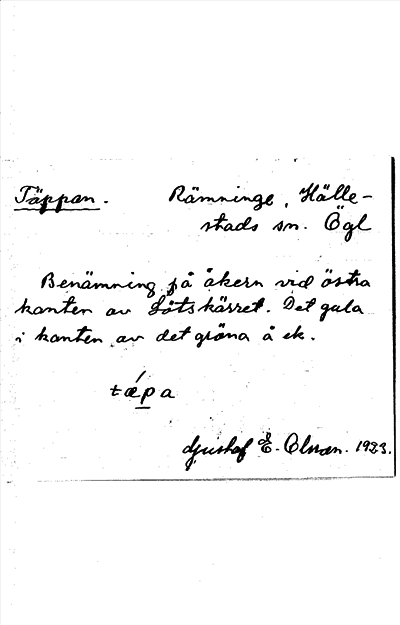 Täppan. Rämninge, Hälle-
stads sn. Ögl
Benämning på åkern vid östra
kanten av Lötskärret. Det gula
i kanten av det gröna å ek.
tǽpa
Gustaf E. Olsson. 1923.